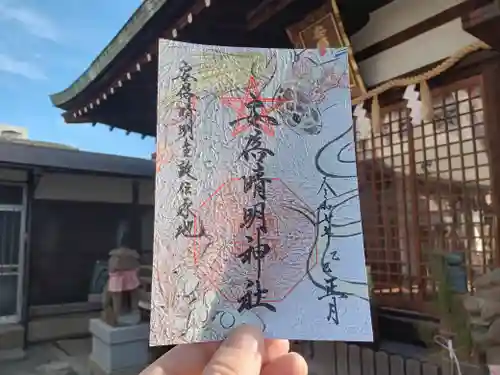 令和七年乙巳正月
安倍晴明神社
安倍晴明生誕伝承地